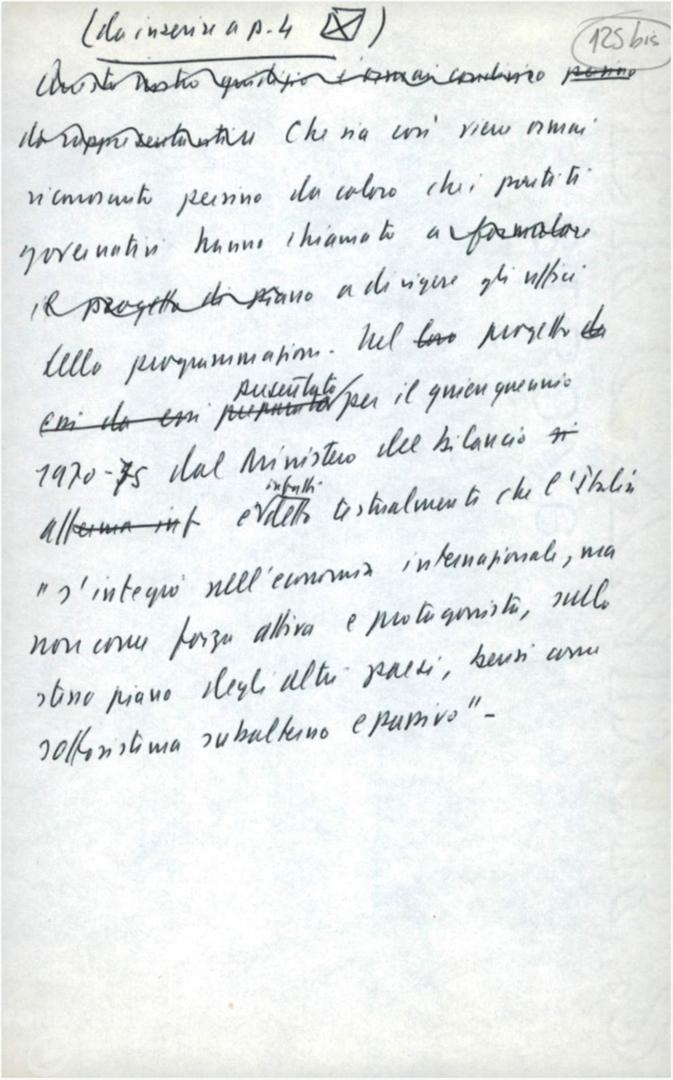 (da inserire a p. 4 ☒)
125 bis
Questo nostro giudizio è ormai condiviso persino
da rappresentanti Che sia così viene ormai
riconosciuto persino da coloro che i partiti
governativi hanno chiamato a formulare
il progetto di piano a dirigere gli uffici
della programmazione. Nel loro progetto da
essi da essi preparato presentato per il quinquennio
1970-75 dal Ministero del bilancio si
afferma inf è detto infatti testualmente che l'Italia
"s'integrò nell'economia internazionale, ma
non come forza attiva e protagonista, sullo
stesso piano degli altri paesi, bensì come
sottosistema subalterno e passivo"-